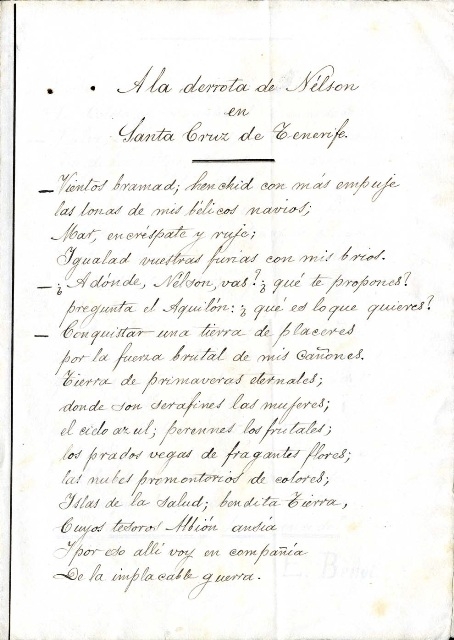 A la derrota de Nélson
en
Santa Cruz de Tenerife.
— Vientos bramad; henchid con más empuje
las lonas de mis bélicos navios;
Mar, encréspate y ruje;
Igualad vuestras furias con mis brios.
— ¿Adónde, Nélson, vas? ¿qué te propones?
pregunta el Aquilón: ¿qué es lo que quieres?
— Conquistar una tierra de placeres
por la fuerza brutal de mis cañones.
Tierra de primaveras eternales;
donde son serafines las mujeres;
el cielo azul; perennes los frutales;
los prados vegas de fragantes flores;
las nubes promontorios de colores;
Islas de la salud; bendita Tierra,
Cuyos tesoros Albión ansía
I por eso allí voy en compañía
De la implacable guerra.